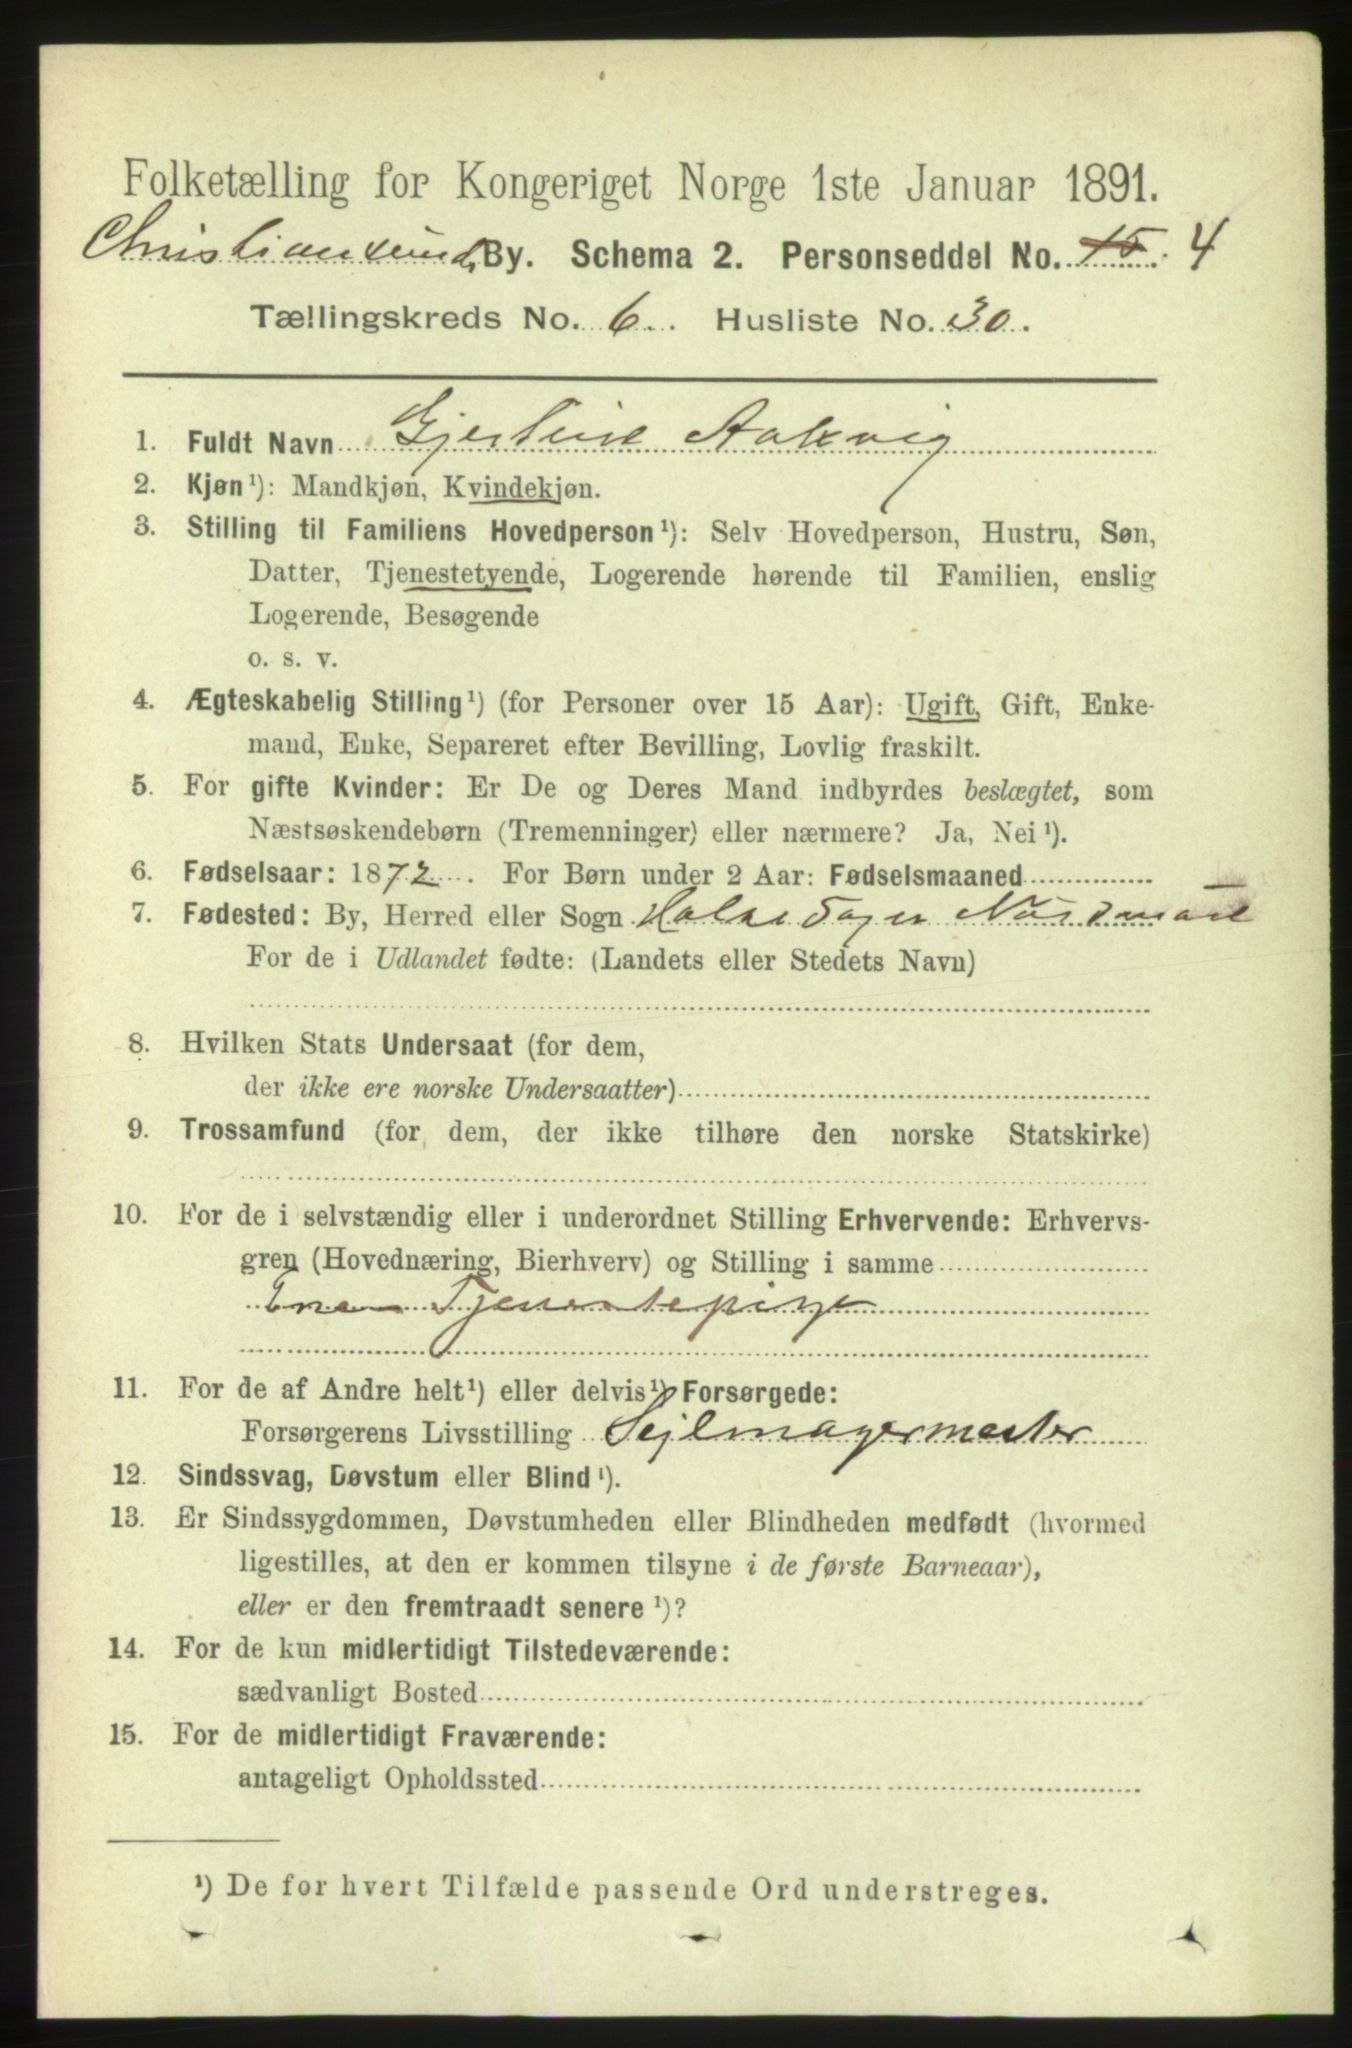 Folketælling for Kongeriget Norge 1ste Januar 1891.
Christiansund By. Schema 2. Personseddel No. 15. 4
Tællingskreds No. 6. Husliste No. 30.
1. Fuldt Navn Gjertine Aakvig
2. Kjøn ¹): Mandkjøn, Kvindekjøn.
3. Stilling til Familiens Hovedperson ¹): Selv Hovedperson, Hustru, Søn,
Datter, Tjenestetyende, Logerende hørende til Familien, enslig
Logerende, Besøgende
o. s. v.
4. Ægteskabelig Stilling ¹) (for Personer over 15 Aar): Ugift, Gift, Enke-
mand, Enke, Separeret efter Bevilling, Lovlig fraskilt.
5. For gifte Kvinder: Er De og Deres Mand indbyrdes beslægtet, som
Næstsøskendebørn (Tremenninger) eller nærmere? Ja, Nei ¹).
6. Fødselsaar: 1872. For Børn under 2 Aar: Fødselsmaaned
7. Fødested: By, Herred eller Sogn Nordmøre
For de i Udlandet fødte: (Landets eller Stedets Navn)
8. Hvilken Stats Undersaat (for dem,
der ikke ere norske Undersaatter)
9. Trossamfund (for dem, der ikke tilhøre den norske Statskirke)
10. For de i selvstændig eller i underordnet Stilling Erhvervende: Erhvervs-
gren (Hovednæring, Bierhverv) og Stilling i samme
Tjenestepige
11. For de af Andre helt ¹) eller delvis ¹) Forsørgede:
Forsørgerens Livsstilling Sejlmagermester
12. Sindssvag, Døvstum eller Blind ¹).
13. Er Sindssygdommen, Døvstumheden eller Blindheden medfødt (hvormed
ligestilles, at den er kommen tilsyne i de første Barneaar),
eller er den fremtraadt senere ¹)?
14. For de kun midlertidigt Tilstedeværende:
sædvanligt Bosted
15. For de midlertidigt Fraværende:
antageligt Opholdssted
¹) De for hvert Tilfælde passende Ord understreges.